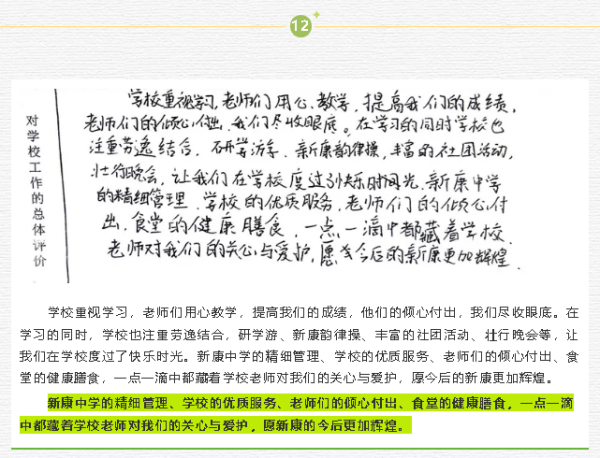 12
对学校工作的总体评价
学校重视学习,老师们用心教学,提高我们的成绩,
老师们的倾心付出,我们尽收眼底。在学习的同时学校也
注重劳逸结合,研学游学,新康韵律操,丰富的社团活动,
壮行晚会,让我们在学校度过了快乐时光,新康中学
的精细管理,学校的优质服务,老师们的倾心付
出,食堂的健康膳食,一点一滴中都藏着学校
老师对我们的关心与爱护,愿今后的新康更加辉煌.
学校重视学习,老师们用心教学,提高我们的成绩,他们的倾心付出,我们尽收眼底。在
学习的同时,学校也注重劳逸结合,研学游、新康韵律操、丰富的社团活动、壮行晚会等,让
我们在学校度过了快乐时光。新康中学的精细管理、学校的优质服务、老师们的倾心付出、食
堂的健康膳食,一点一滴中都藏着学校老师对我们的关心与爱护,愿今后的新康更加辉煌。
新康中学的精细管理、学校的优质服务、老师们的倾心付出、食堂的健康膳食,一点一滴
中都藏着学校老师对我们的关心与爱护,愿新康的今后更加辉煌。